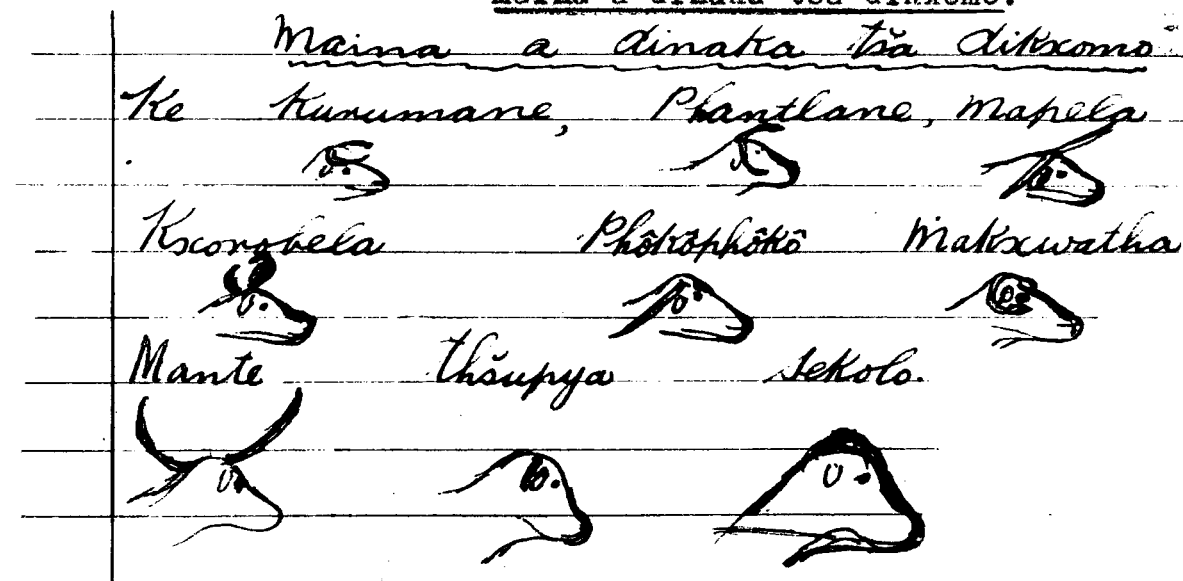 a dinaka tša dikxomo.
Maina a dinaka tša dikxomo
Ke Kurumane, Phantlane, Mapela
Kxorobela Phôkôphôkô Makxwatha
Mante thšupya Sekolo.